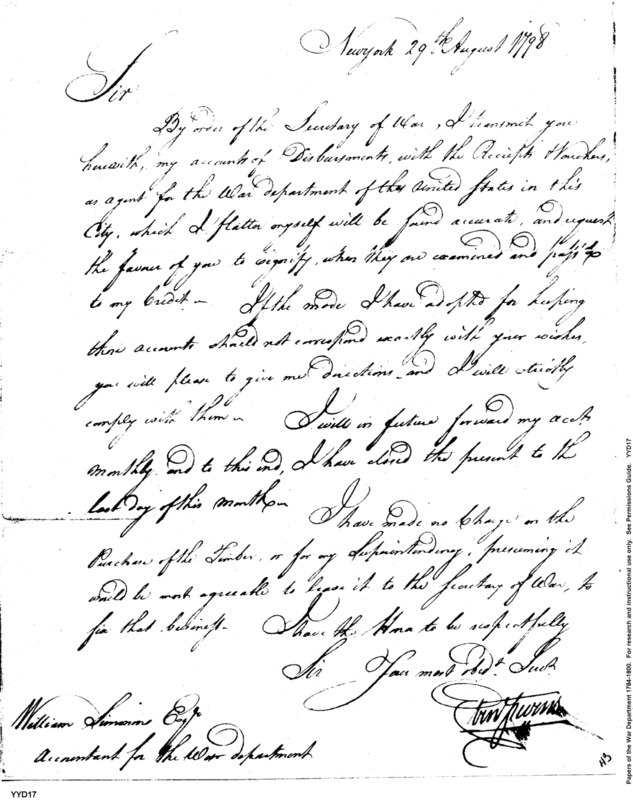 Newyork 29th August 1798
Sir
By order of the Secretary of War, I transmit you
herewith, my accounts of Disbursments, with the Receipts & Vouchers,
as agent for the War department of the United States in this
City, which I flatter myself will be found accurate, and request
the favour of you to signify, when they are examined and pass'd
to my Credit - If the mode I have adopted for keeping
those accounts should not correspond exactly with your wishes,
you will please to give me directions - and I will strictly
comply with them - I will in future forward my accts
monthly and to this end, I have closed the present to the
last day of this month -
I have made no Charge on the
Purchase of the Timber, or for my Superintendency, presuming it
would be most agreeable to leave it to the Secretary of War, to
fix that business - I have the Honor to be respectfully
Sir Your most Obedt Servt
William Simmons Esqr
Accountant for the War department
113
YYD17
Papers of the War Department 1784-1800. For research and instructional use only. See Permissions Guide. YYD17